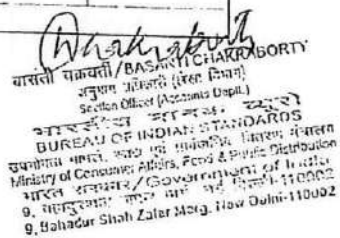 Chakraborty
वासंती चक्रवर्ती/BASANTI CHAKRABORTY
अनुभाग अधिकारी (लेखा विभाग)
Section Officer (Accounts Deptt.)
भारतीय मानक ब्यूरो
BUREAU OF INDIAN STANDARDS
उपभोक्ता मामले, खाद्य एवं सार्वजनिक वितरण मंत्रालय
Ministry of Consumer Affairs, Food & Public Distribution
भारत सरकार/Government of India
9, बहादुरशाह ज़फर मार्ग, नई दिल्ली-110002
9, Bahadur Shah Zafar Marg, New Delhi-110002